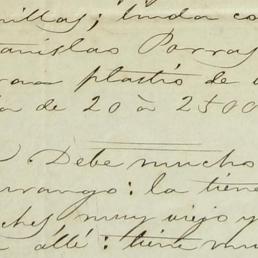 illas; linda co
tanislao Porras
raa plastió de
ia de 20 à 2500
Debe mucho
urango: la tiene
ches, muy viejo y
allé: tiene mu